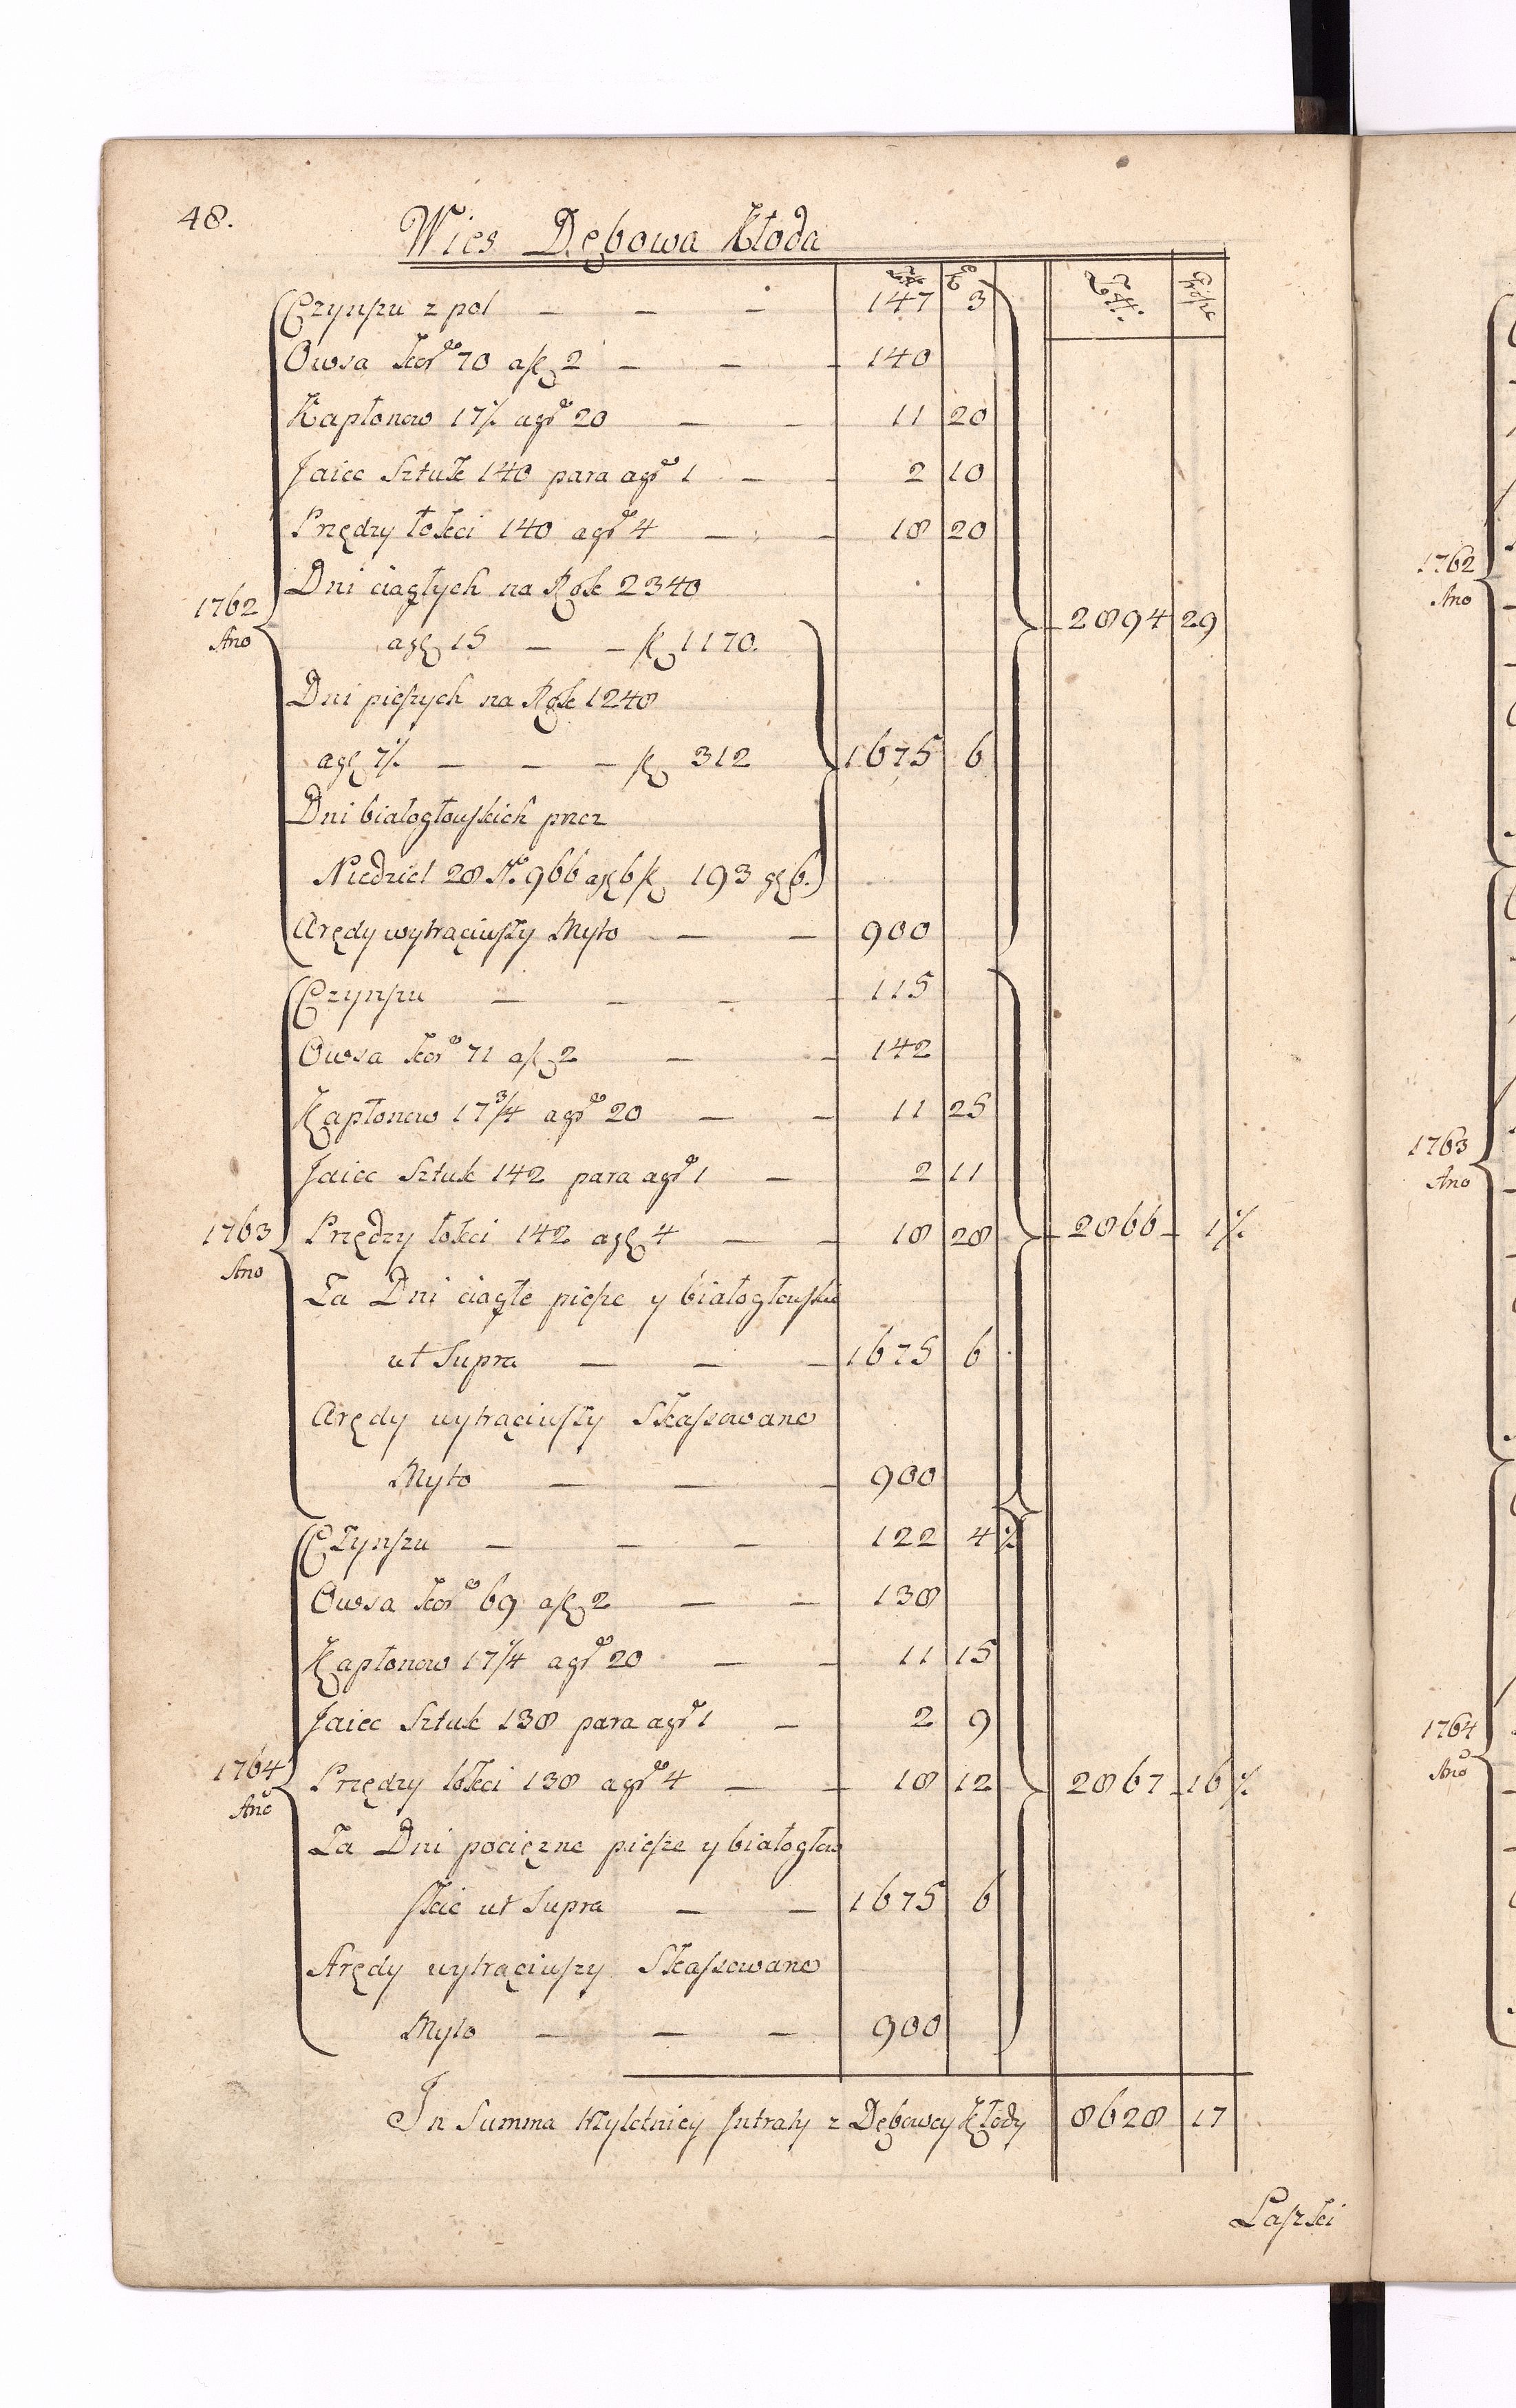 48.
Wies Dębowa Kłoda
Czynszu z pol — — — 147 3
Owsa kor. 70 a fl 2 — — — 140
Kapłonow 17½ a gr 20 — — 11 20
Jaiec Sztuk 140 para a gr 1 — — 2 10
Przędzy łokci 140 a gr 4 — — 18 20
Dni ciągłych na Rok 2340
1762 Ano 2894 29
a gr 15 — — fl 1170.
Dni pieszych na Rok 1248
a gr 7½ — — — fl 312 1675 6
Dni białogłouskich przez
Niedziel 28 No 966 a gr 6 fl 193 gr 6.
Arędy wytrąciuszy Myto — — 900
Czynszu — — — 115
Owsa kor. 71 a fl 2 — — 142
Kapłonow 17¾ a gr 20 — — 11 25
Jaiec Sztuk 142 para a gr 1 — 2 11
1763 Ano Przędzy łokci 142 a gr 4 — — 18 28 2866 1½
Za Dni ciągłe piesze y białogłouskie
ut Supra — — — 1675 6
Arędy wytrąciuszy Skassowane
Myto — — — 900
Czynszu — — — 122 4½
Owsa kor. 69 a fl 2 — — 138
Kapłonow 17¼ a gr 20 — — 11 15
Jaiec Sztuk 138 para a gr 1 — 2 9
1764 Ano Przędzy łokci 138 a gr 4 — — 18 12 2867 16½
Za Dni pociężne piesze y białogłow
skie ut Supra — — 1675 6
Arędy wytrąciuszy Skassowane
Myto — — — 900
In Summa trzyletniey Intraty z Dębowey Kłody 8628 17
Laszki
1762
Ano
1763
Ano
1764
Ano